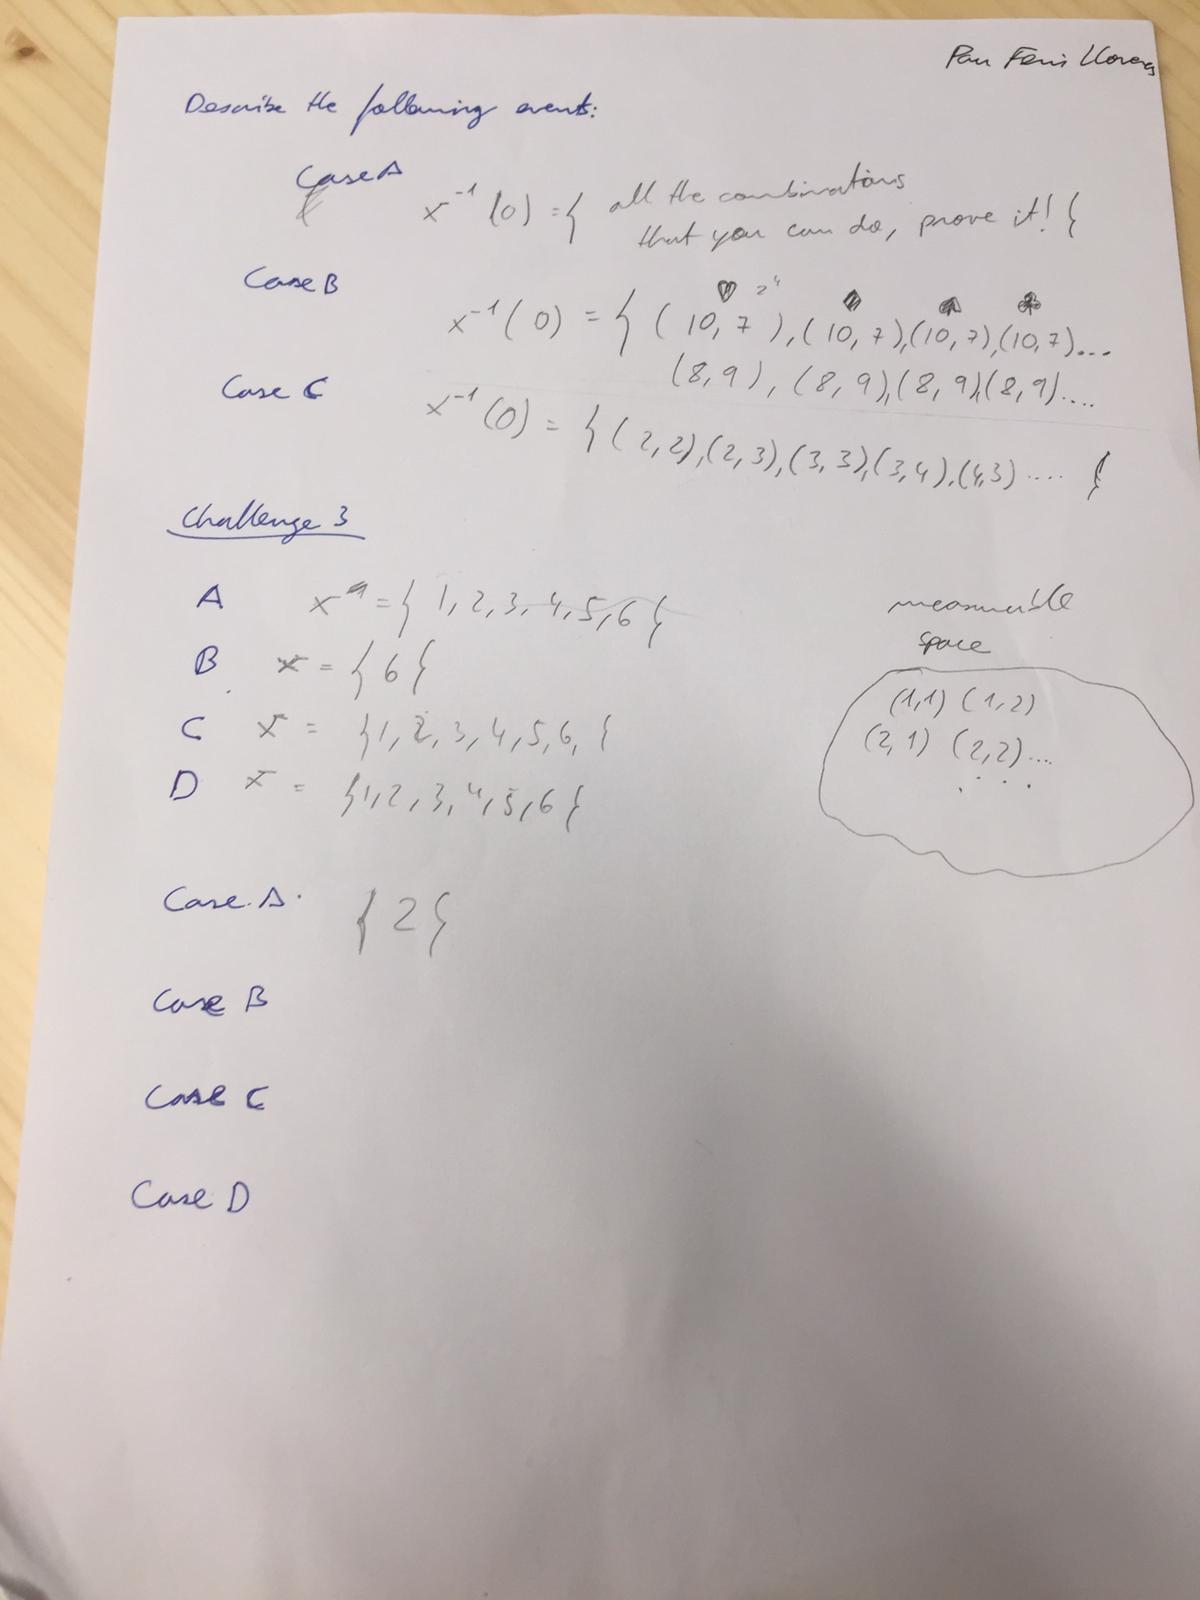 Pau Feris Llorens
Describe the following events:
Case A
x⁻¹(0) = { all the combinations
that you can do, prove it! {
Case B
♥ 2⁴ ♦ ♠ ♣
x⁻¹(0) = { (10, 7), (10, 7), (10, 7), (10, 7)...
(8, 9), (8, 9), (8, 9) (8, 9)....
Case C
x⁻¹(0) = { (2, 2), (2, 3), (3, 3), (3, 4), (4, 3) .... {
Challenge 3
A x = { 1, 2, 3, 4, 5, 6 {
B x = { 6 {
C x = { 1, 2, 3, 4, 5, 6, {
D x = { 1, 2, 3, 4, 5, 6 {
measurable
space
(1,1) (1,2)
(2,1) (2,2)....
. . .
Case A. { 2 {
Case B
Case C
Case D